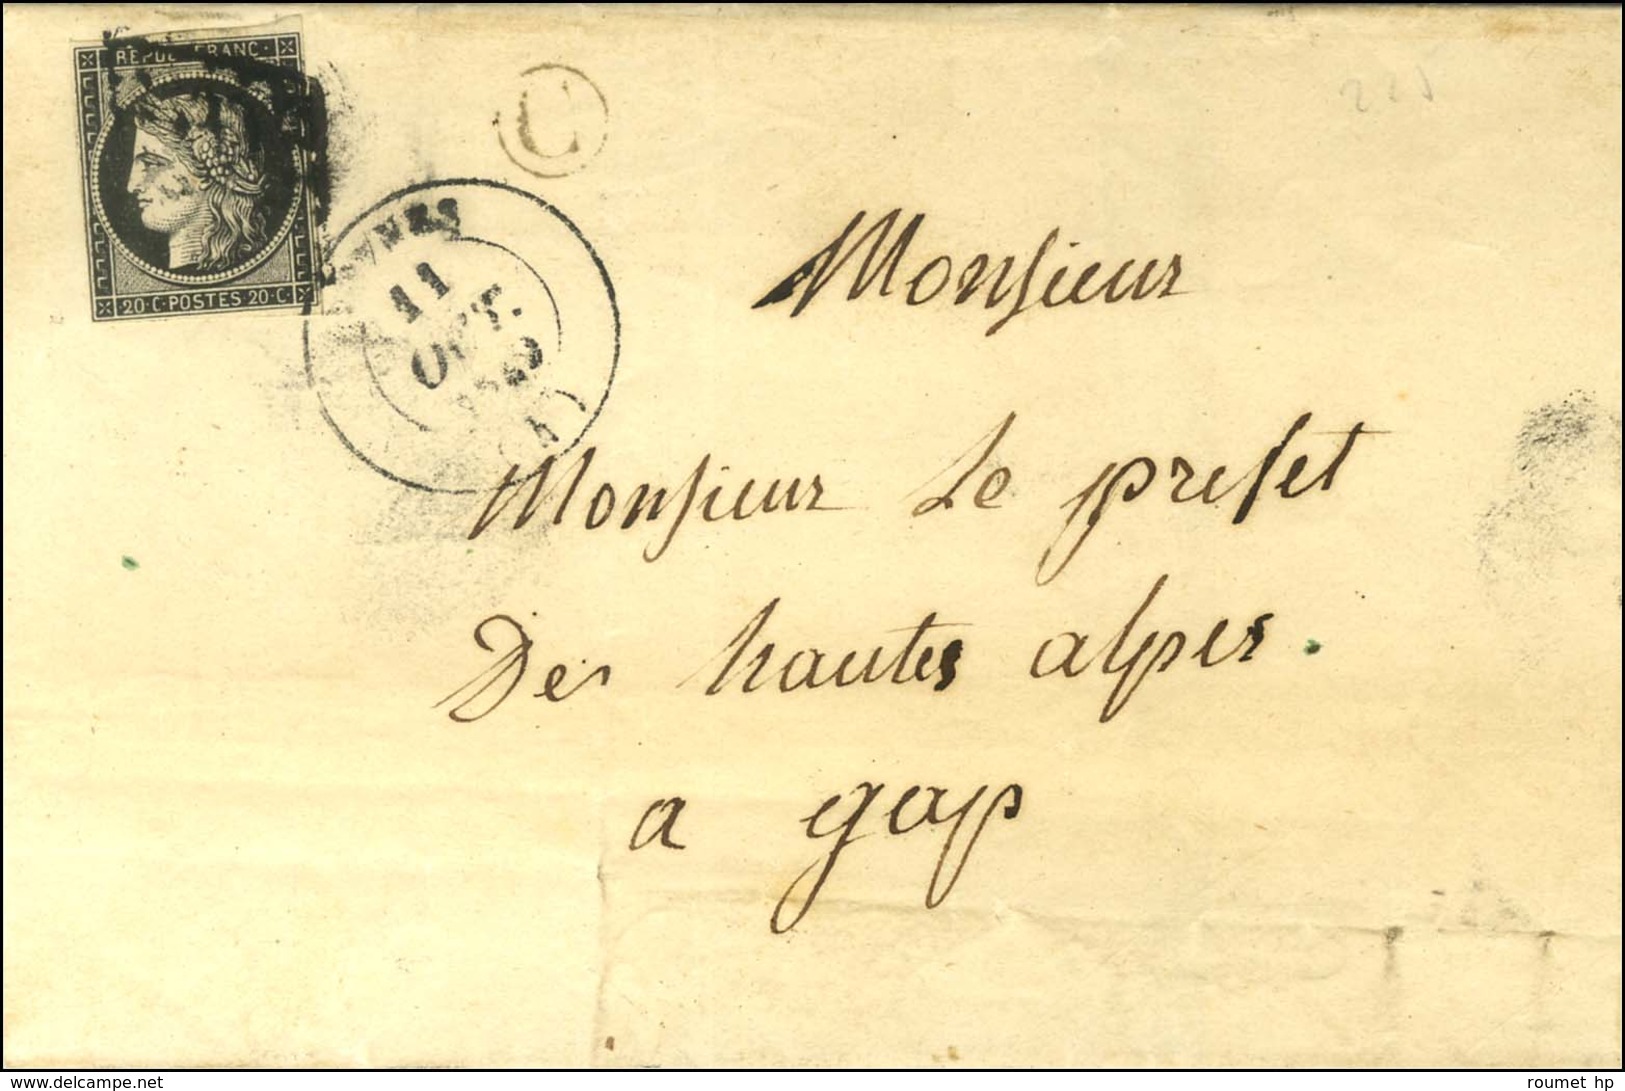 REPUB FRANC
20·C·POSTES 20·C·
C
11
OCT.
225
Monsieur
Monsieur Le prefet
Des hautes alpes.
a gap
www.delcampe.net
roumet hp